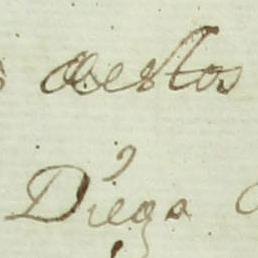 destos
Diego